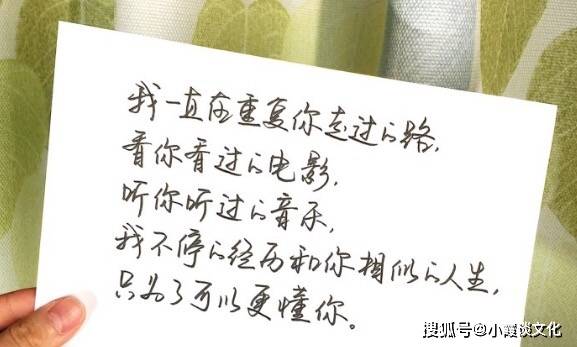 我一直在重复你走过的路,
看你看过的电影,
听你听过的音乐,
我不停的经历和你相似的人生,
只为了可以更懂你。
搜狐号@小霞谈文化